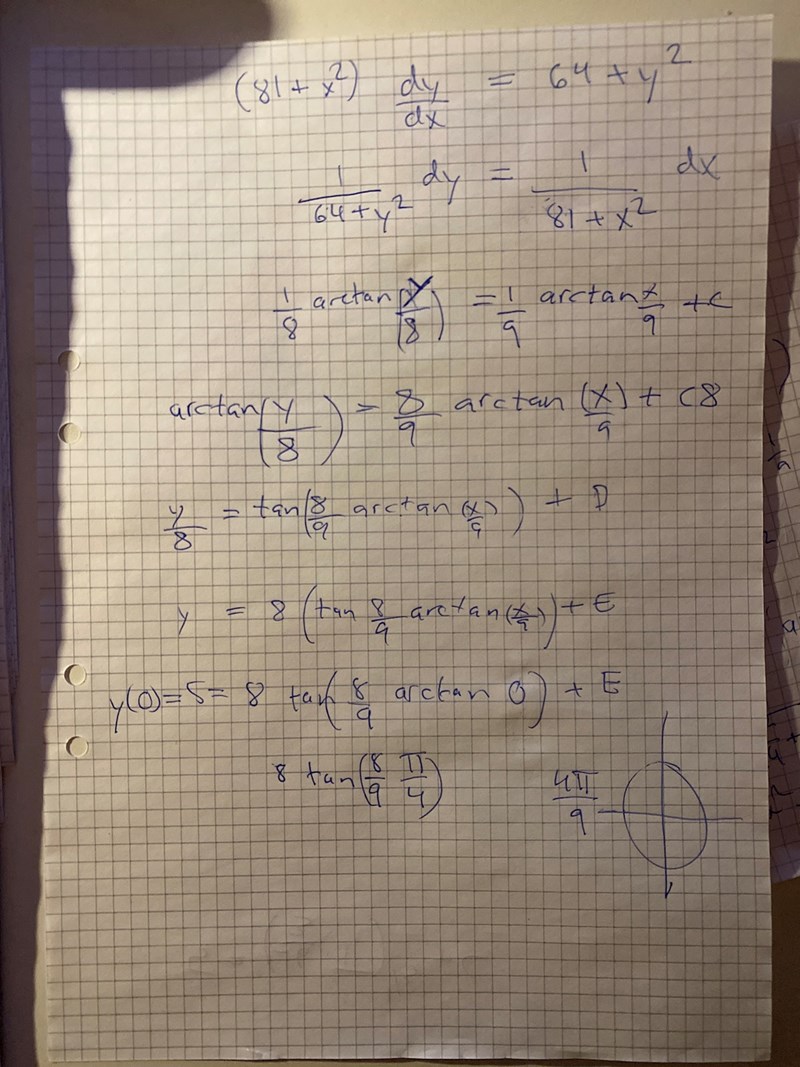 (81 + x²) dy/dx = 64 + y²
1/(64 + y²) dy = 1/(81 + x²) dx
1/8 arctan(y/8) = 1/9 arctan x/9 + c
arctan(y/8) = 8/9 arctan (x/9) + C8
y/8 = tan(8/9 arctan(x/9)) + D
y = 8 (tan 8/9 arctan(x/9)) + E
y(0) = 5 = 8 tan(8/9 arctan 0) + E
8 tan(8/9 π/4)
4π/9